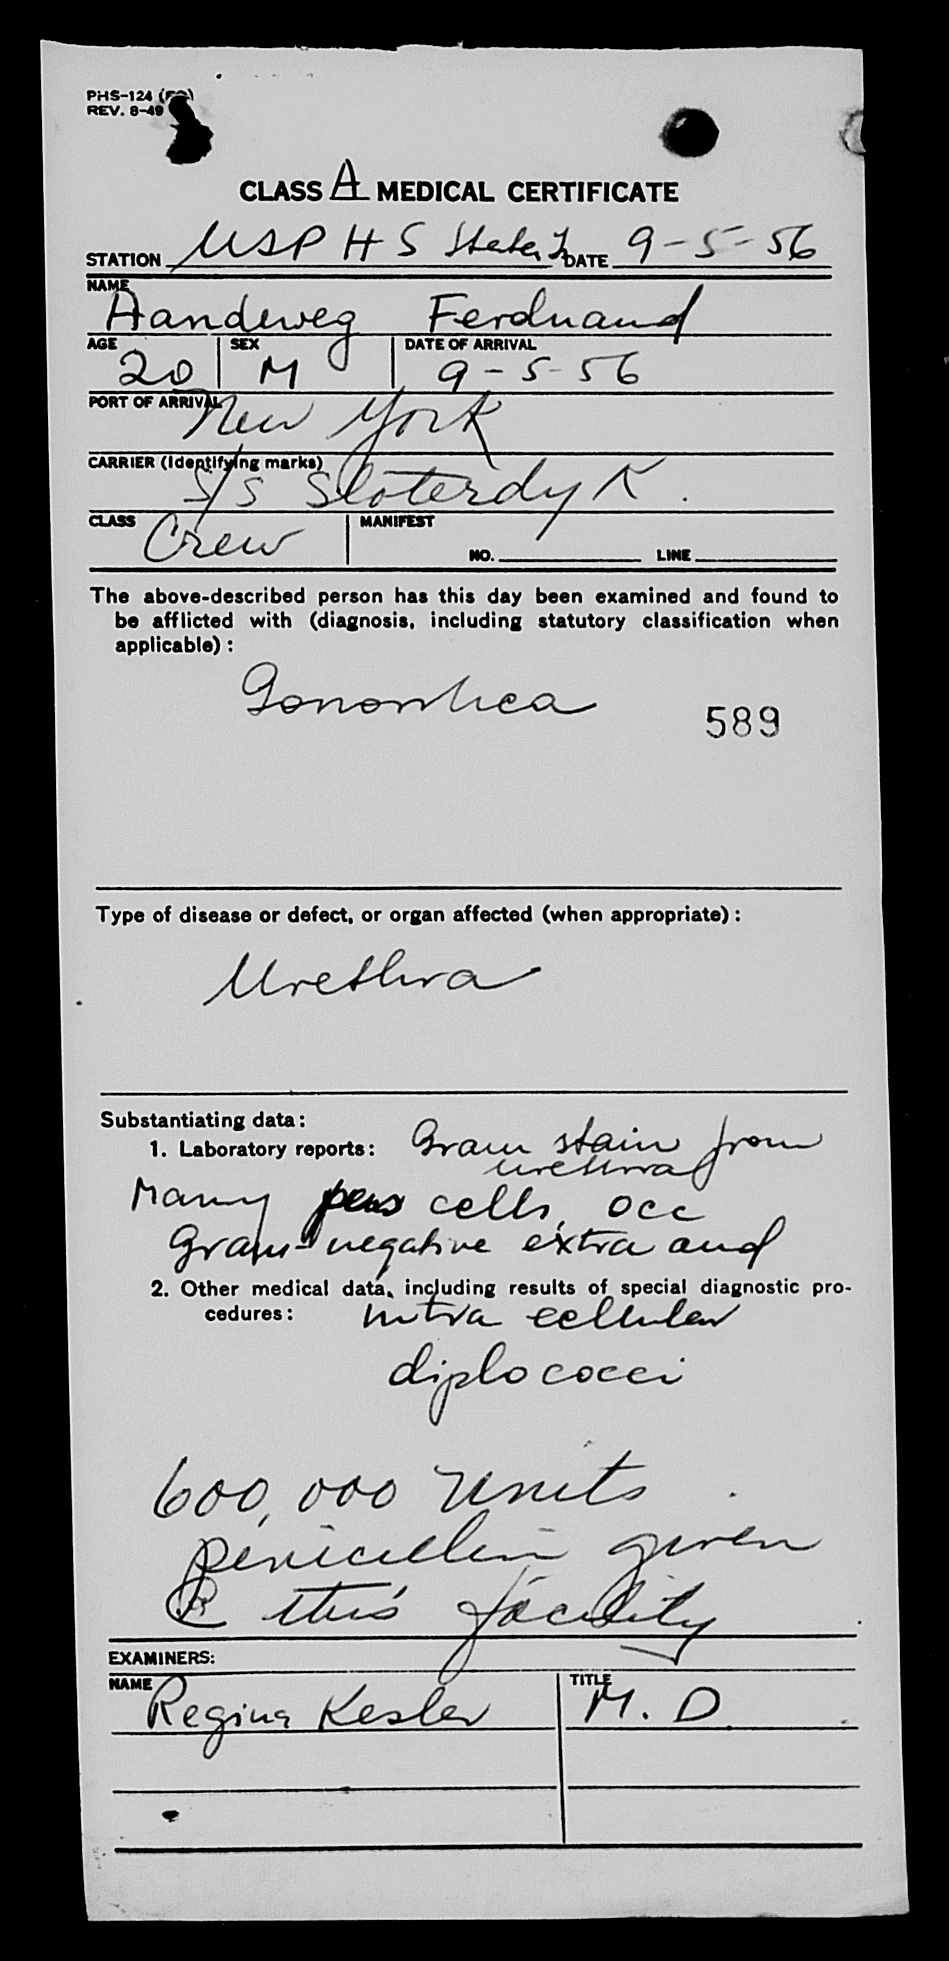 PHS-124 (FQ)
REV. 8-49
CLASS A MEDICAL CERTIFICATE
STATION USPHS DATE 9-5-56
NAME
Handeweg Ferdnand
AGE 20 SEX M DATE OF ARRIVAL 9-5-56
PORT OF ARRIVAL New York
CARRIER (Identifying marks)
S/S Sloterdyk.
CLASS Crew MANIFEST
NO. LINE
The above-described person has this day been examined and found to
be afflicted with (diagnosis, including statutory classification when
applicable):
Gonorrhea
589
Type of disease or defect, or organ affected (when appropriate):
Urethra
Substantiating data:
1. Laboratory reports: Gram stain from
urethra
Many pus cells, occ
Gram-negative extra and
2. Other medical data, including results of special diagnostic pro-
cedures: intra cellular
diplococci
600,000 Units
penicillin given
@ this facility
EXAMINERS:
NAME Regina Kesler TITLE M.D.